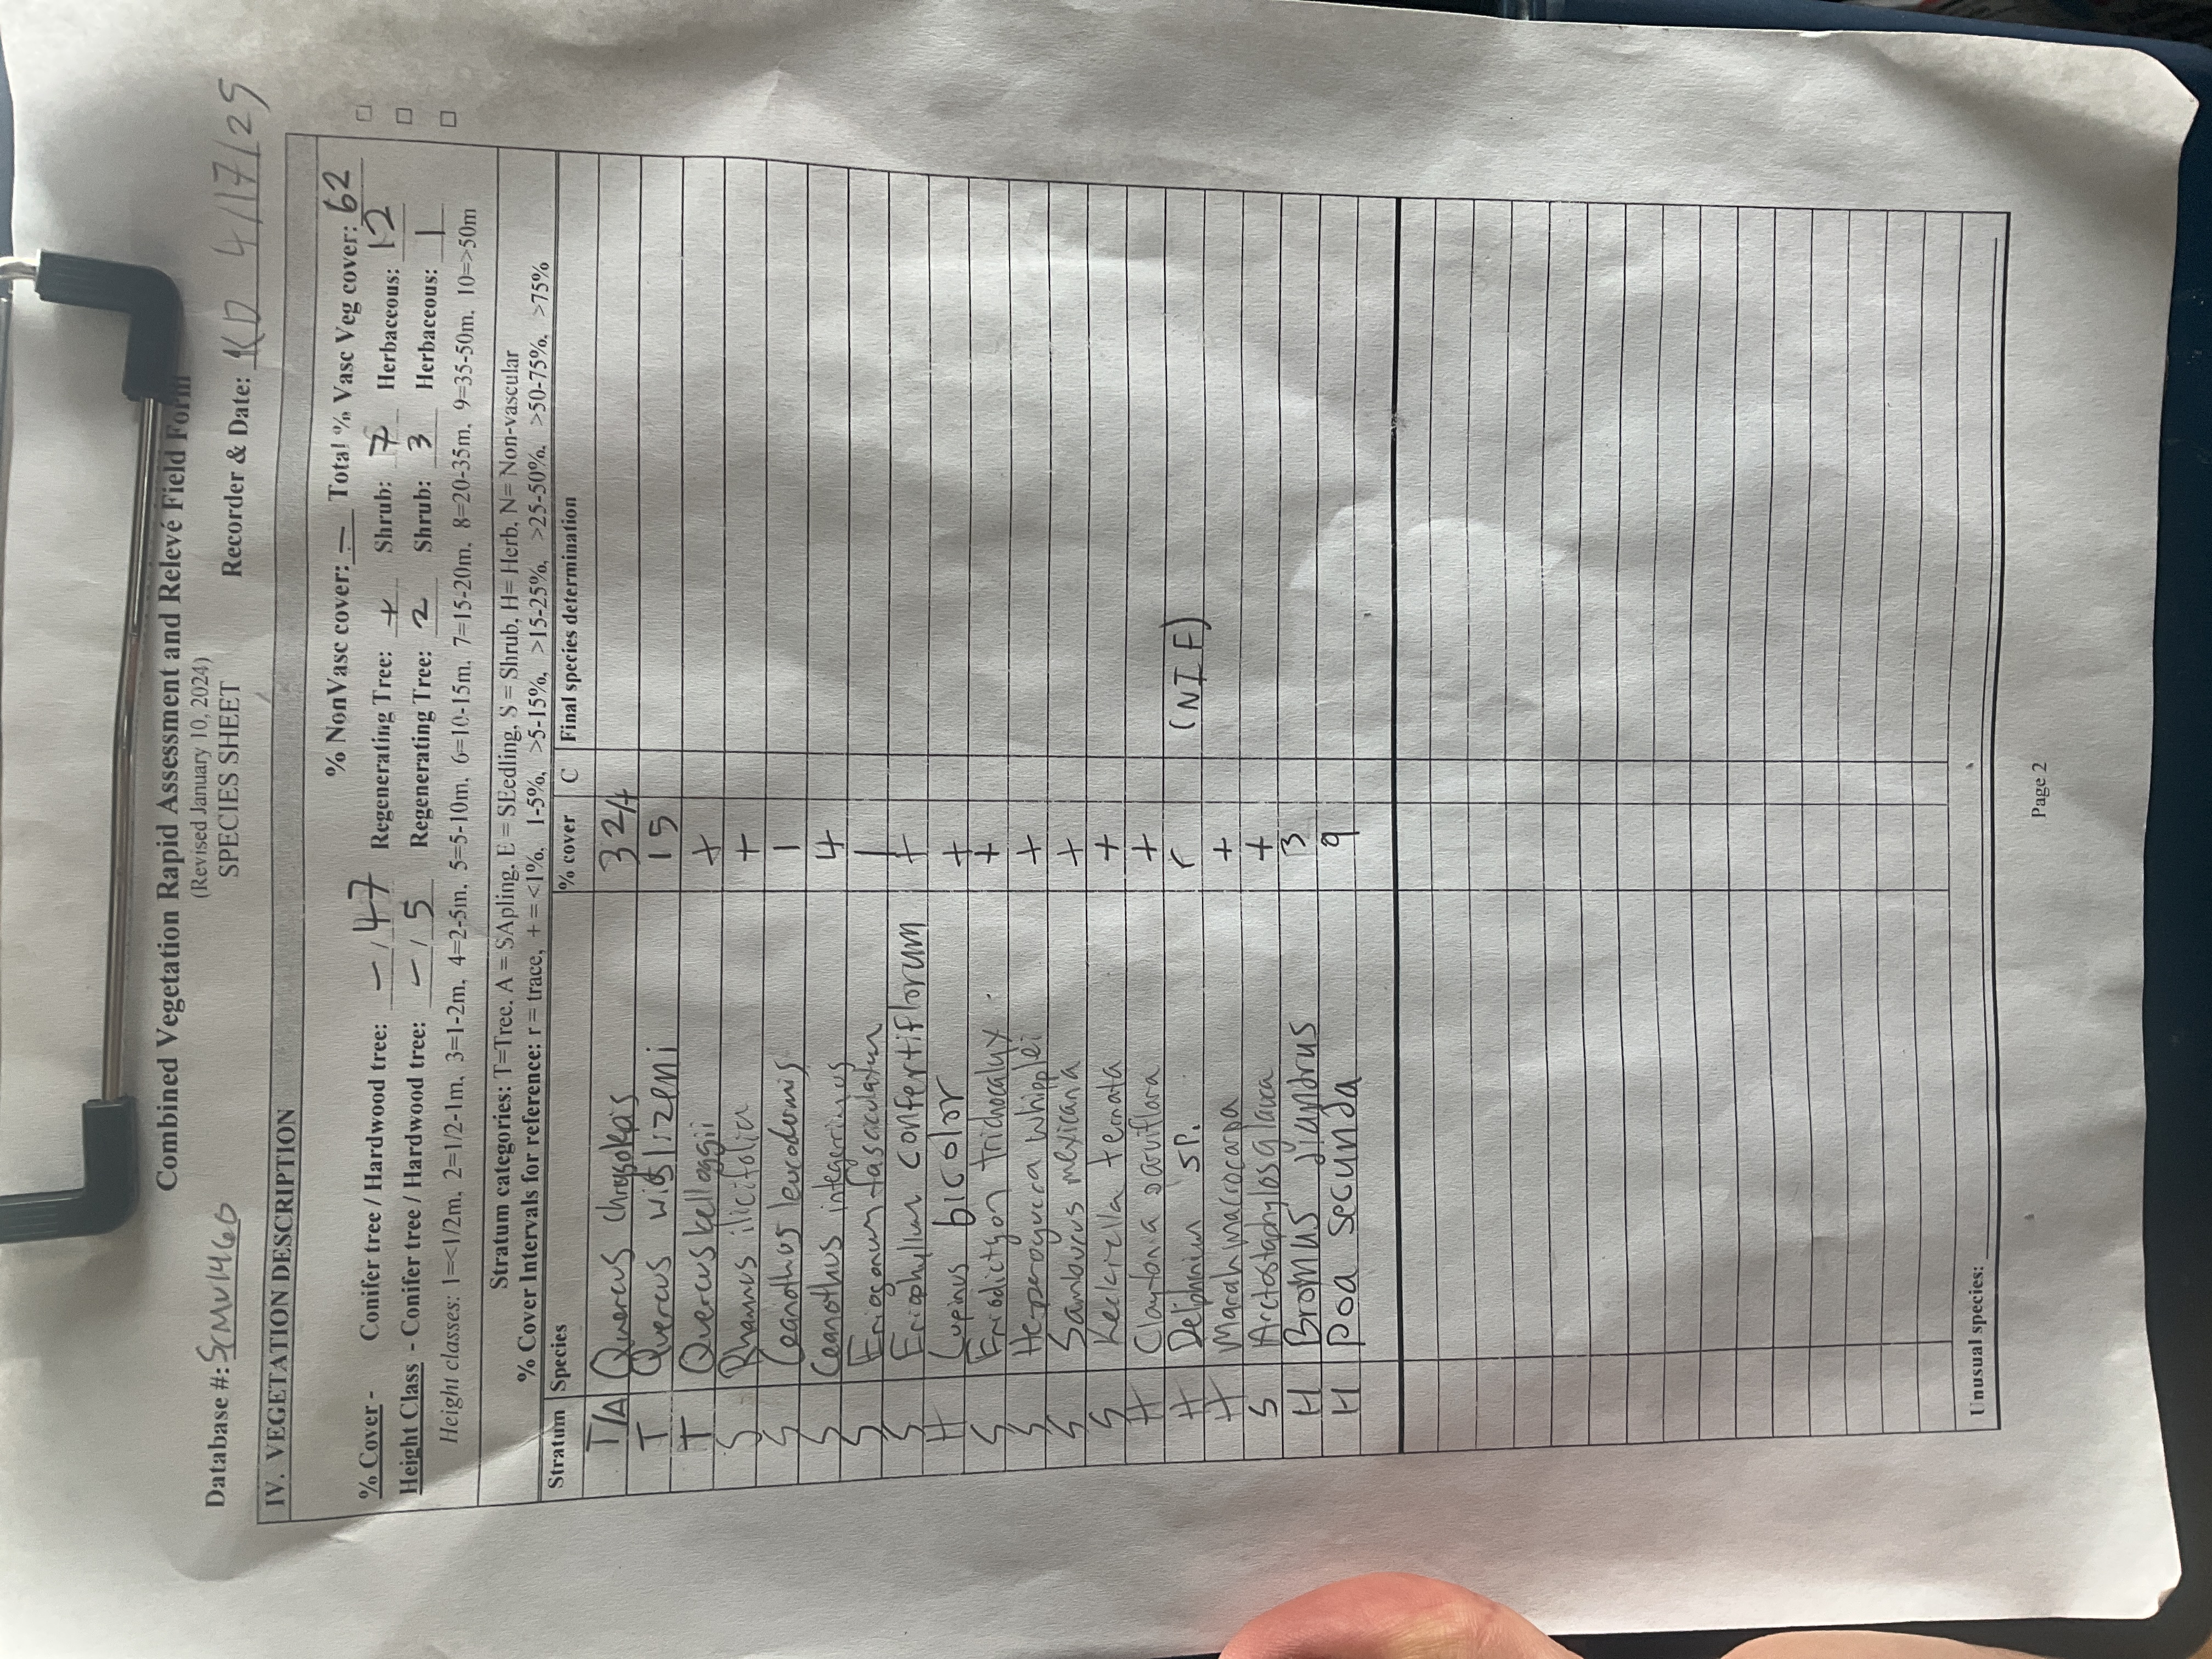 Combined Vegetation Rapid Assessment and Relevé Field Form
(Revised January 10, 2024)
SPECIES SHEET
Database #: Recorder & Date: KD 4/17/25
IV. VEGETATION DESCRIPTION
% NonVasc cover: - Total % Vasc Veg cover: 62
% Cover - Conifer tree / Hardwood tree: - / 47 Regenerating Tree: + Shrub: 7 Herbaceous: 12
Height Class - Conifer tree / Hardwood tree: - / 5 Regenerating Tree: 2 Shrub: 3 Herbaceous: 1
Height classes: 1=<1/2m, 2=1/2-1m, 3=1-2m, 4=2-5m, 5=5-10m, 6=10-15m, 7=15-20m, 8=20-35m, 9=35-50m, 10=>50m
Stratum categories: T=Tree, A = SApling, E = SEedling, S = Shrub, H= Herb, N= Non-vascular
% Cover Intervals for reference: r = trace, + = <1%, 1-5%, >5-15%, >15-25%, >25-50%, >50-75%, >75%
Stratum Species % cover C Final species determination
T/A Quercus chrysolepis 32/+
T Quercus wislizeni 15
T Quercus kelloggii +
S Rhamnus ilicifolia +
S Ceanothus leucodermis 1
S Ceanothus integerrimus 4
S Eriogonum fasciculatum 1
S Eriophyllum confertiflorum +
H Lupinus bicolor +
S Eriodictyon trichocalyx +
S Hesperoyucca whipplei +
S Sambucus mexicana +
S Keckiella ternata +
H Claytonia parviflora +
H Delphinium sp. r (NIF)
H Marah macrocarpa +
S Arctostaphylos glauca +
H Bromus diandrus 3
H poa secunda 9
Unusual species:
Page 2